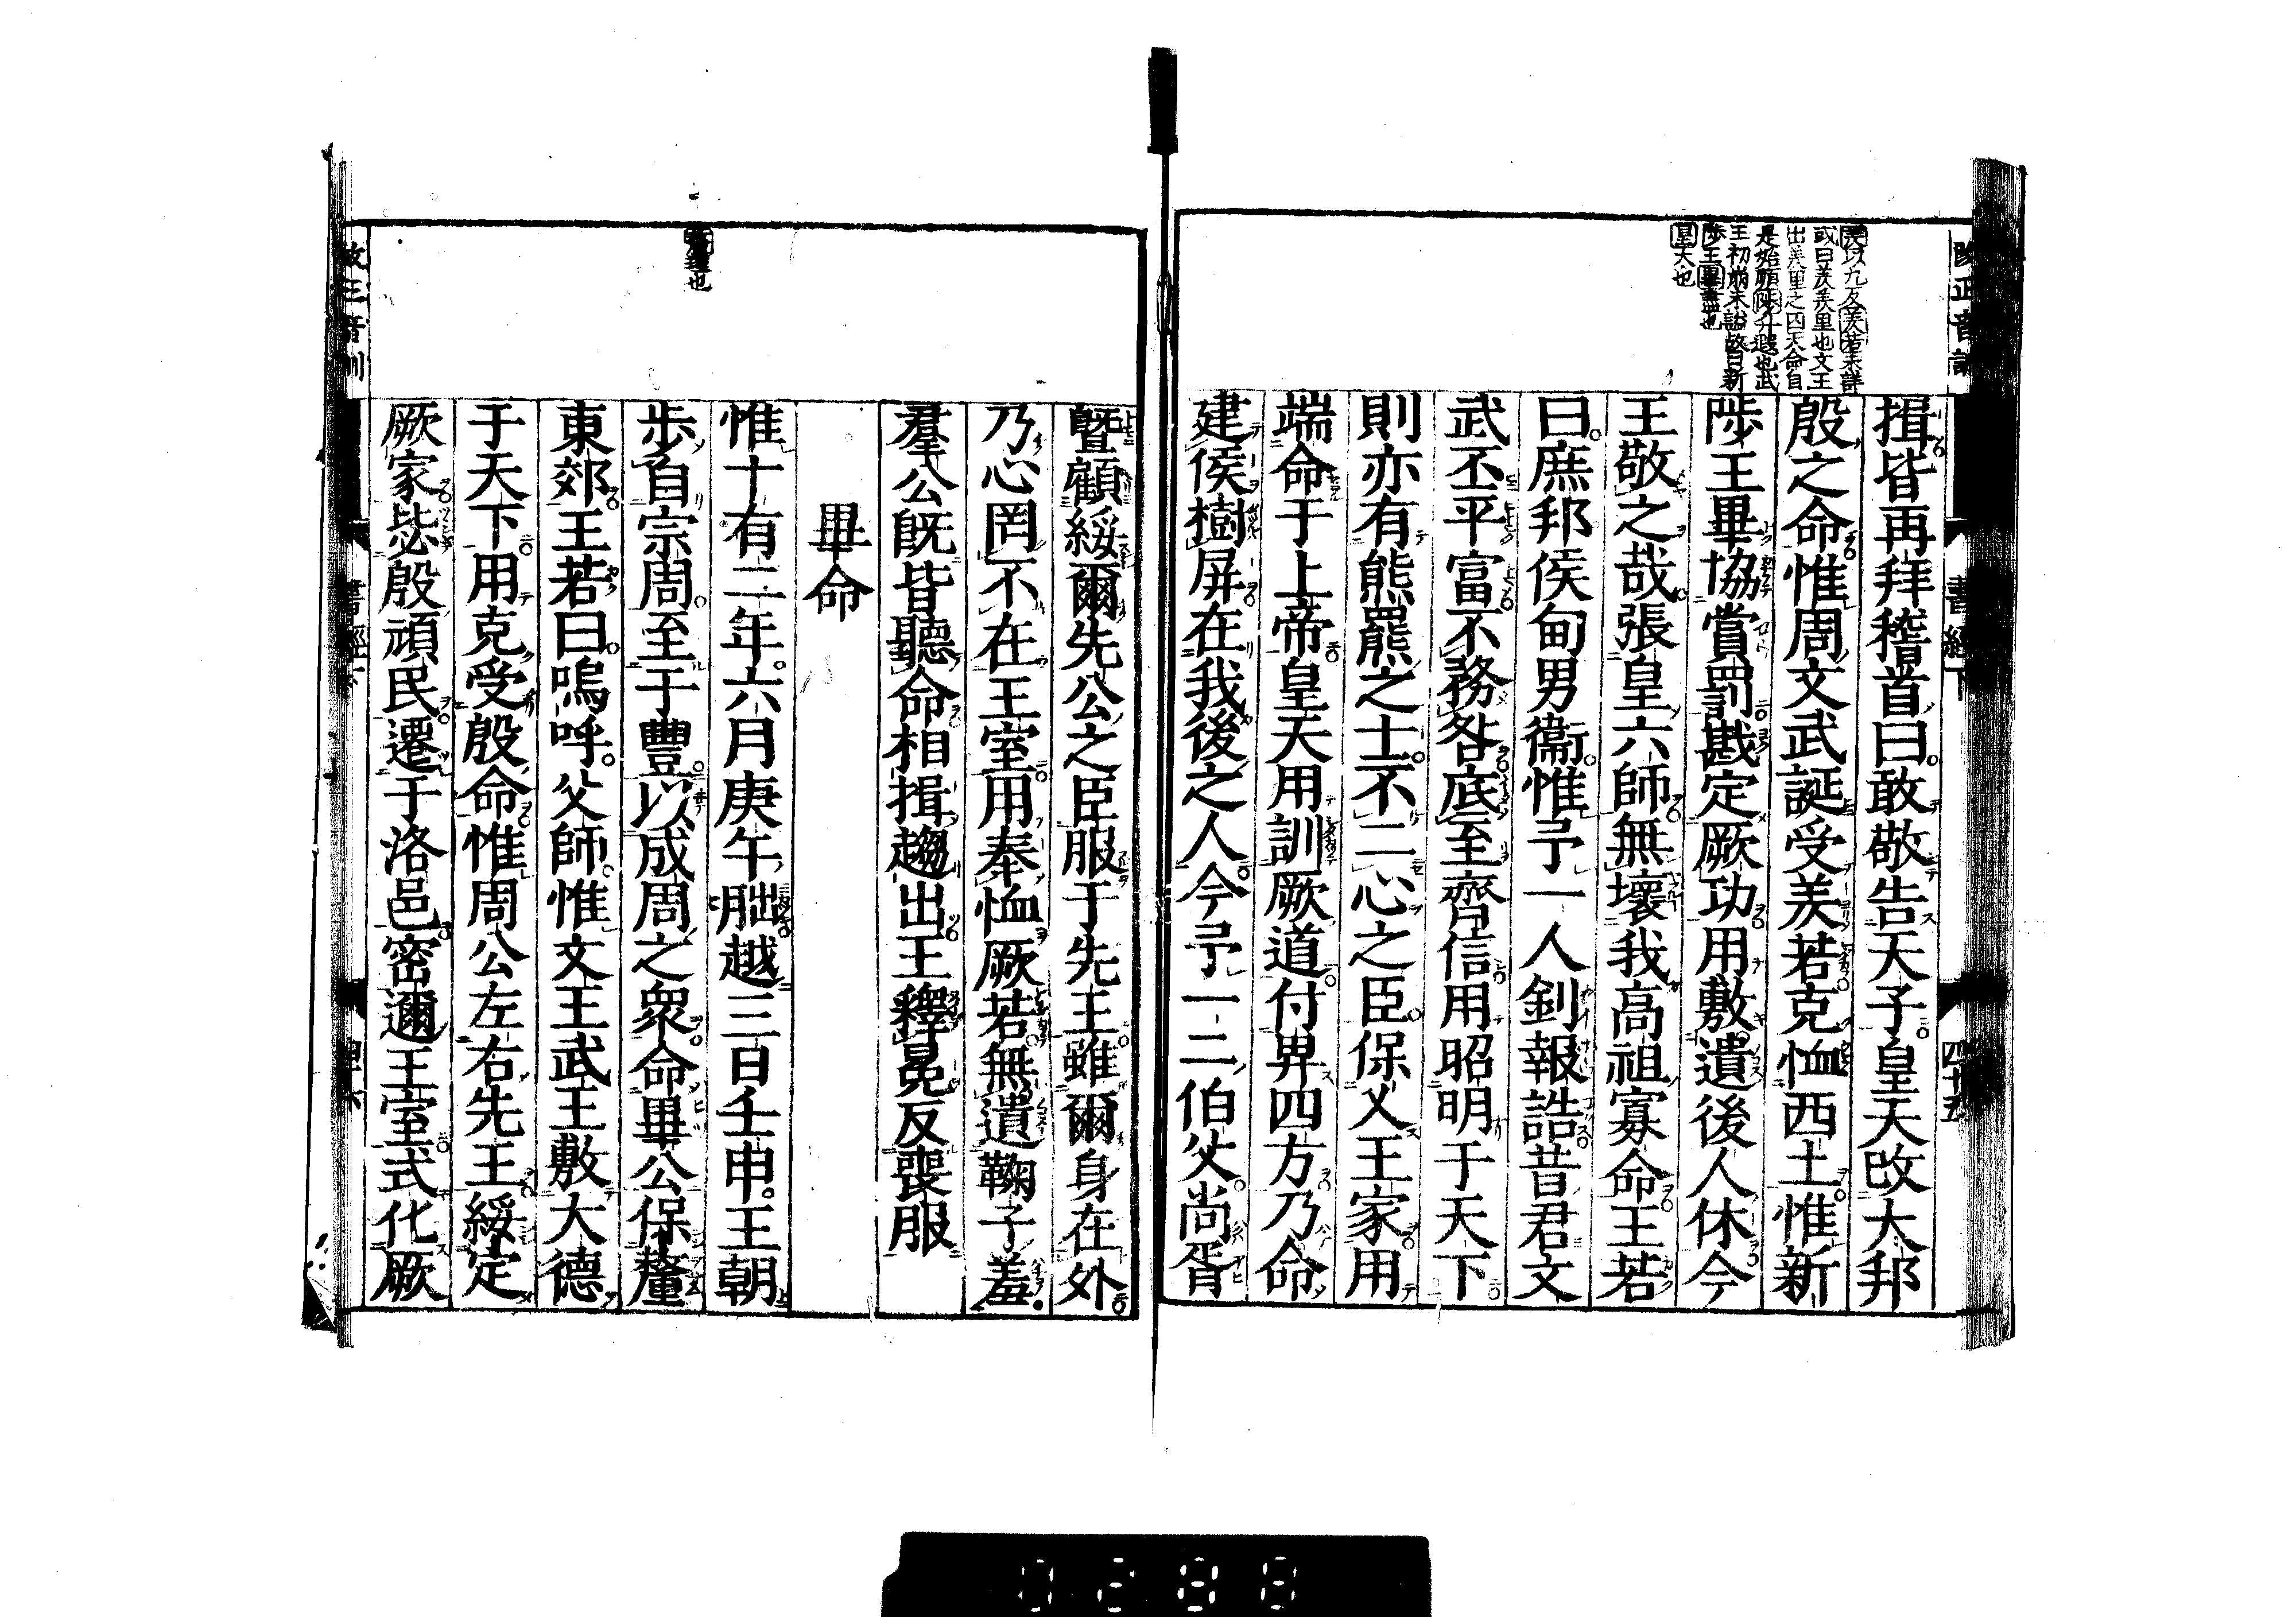 羑以九反羑若未詳
或曰羑羑里也文王
出羑里之囚天命自
是始順陟升遐也武
王初崩未諡故曰新
陟王畢盡也
皇大也
揖皆再拜稽首曰敢敬告天子皇天改大邦
殷之命惟周文武誕受羑若克恤西土惟新
陟王畢協賞罰戡定厥功用敷遺後人休今
王敬之哉張皇六師無壞我高祖寡命王若
曰庶邦侯甸男衞惟予一人釗報誥昔君文
武丕平富不務咎底至齊信用昭明于天下
則亦有熊羆之士不二心之臣保乂王家用
端命于上帝皇天用訓厥道付畀四方乃命
建侯樹屏在我後之人今予一二伯父尚胥
曁顧綏爾先公之臣服于先王雖爾身在外
乃心罔不在王室用奉恤厥若無遺鞠子羞
羣公旣皆聽命相揖趨出王釋冕反喪服
畢命
惟十有二年六月庚午朏越三日壬申王朝
步自宗周至于豐以成周之衆命畢公保釐
東郊王若曰嗚呼父師惟文王武王敷大德
于天下用克受殷命惟周公左右先王綏定
厥家毖殷頑民遷于洛邑密邇王室式化厥
書經下
四十五
0288